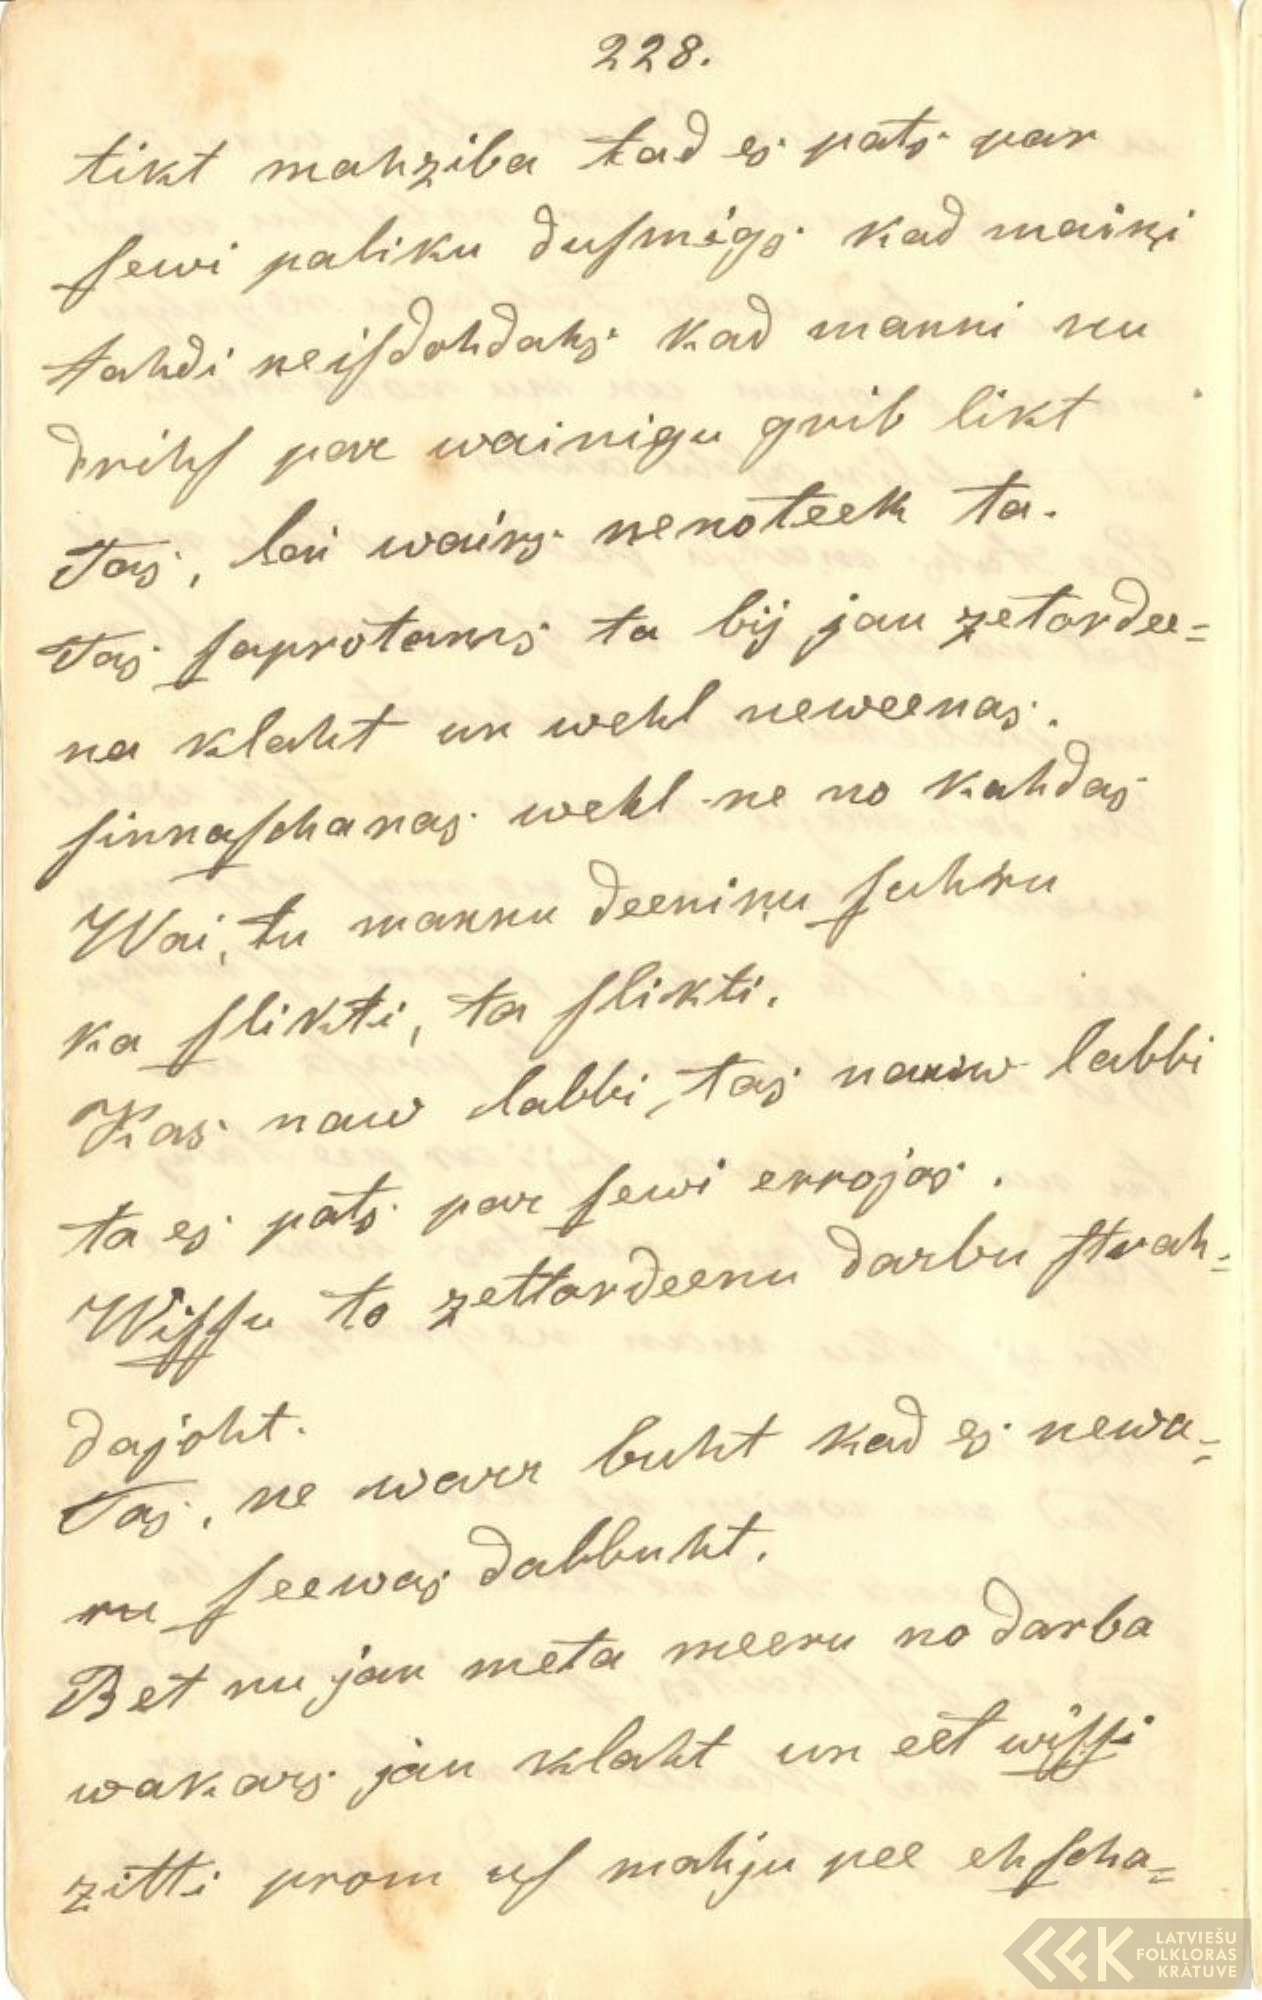 228.
tikt mahziba tad es pats par
sewi paliku dusmigs kad maiņi
tahdi neisdohdahs kad manni nu
drihs par wainigu grib likt
Tas, lai wairs nenoteek ta.
Tas saprotams ta bij jau zetordee=
na klaht un wehl neweenas.
sinnaschanas wehl ne no kahdas
Wai, tu mannu deeniņu suhru
ka slikti, ta slikti.
Kas naw labbi, tas naw labbi
ta es pats par sewi errojas.
Wissu to zettordeenu darbu strah=
dajoht.
Tas, ne warr buht kad es newa=
ru seewas dabbuht.
Bet nu jau meta meeru no darba
wakars jau klaht un eet wissi
zitti prom us mahju pee ehscha=
LATVIEŠU
FOLKLORAS
KRĀTUVE